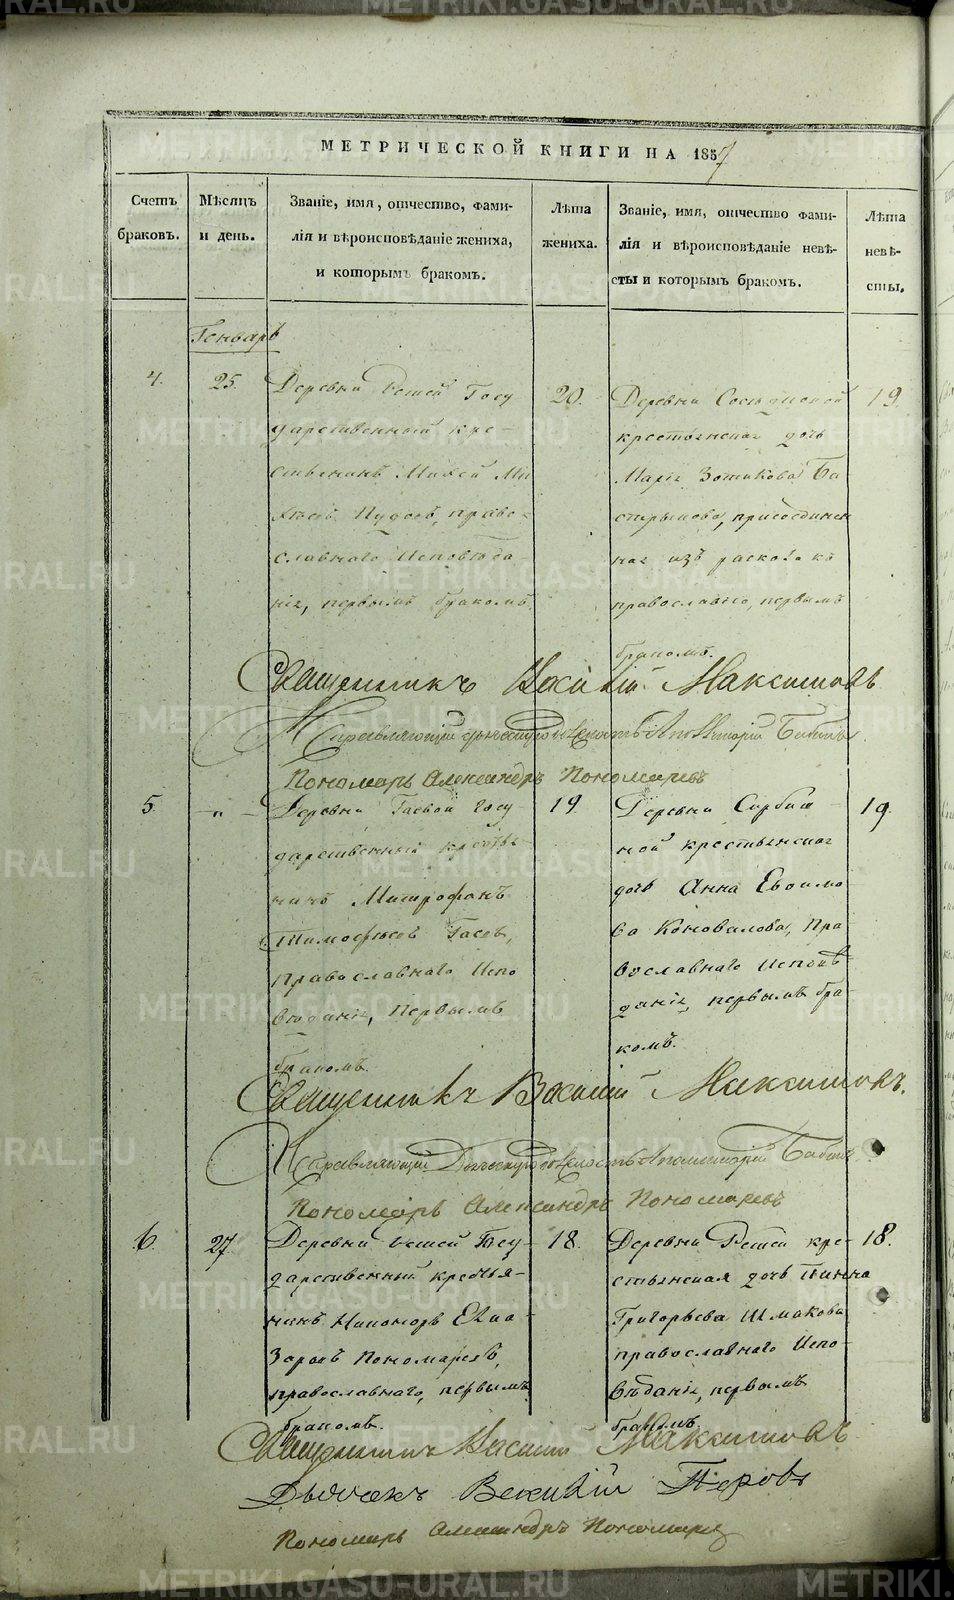 МЕТРИЧЕСКОЙ КНИГИ НА 1857
Счетъ браковъ.
Мѣсяцъ и день.
Званіе, имя, отчество, фами-
лія и вѣроисповѣданіе жениха,
и которымъ бракомъ.
Лѣта жениха.
Званіе, имя, отчество фами-
лія и вѣроисповѣданіе невѣ-
сты и которымъ бракомъ.
Лѣта невѣ-
сты.
Генварь
4. 25.
Деревни Гос
ударственный кре-
стьянинъ Михей Ми
хѣевъ Пудовъ, право-
славнаго исповѣда-
нія, первымъ бракомъ
20.
Деревни
крестьянская дочь
Марія Зотикова Ба
стрыкова, присоединен
ная изъ раскола къ
православію, первымъ
бракомъ.
19.
Священникъ Василій Максимовъ
Исправляющій дьяческую должность Апполинарій
Пономарь Александръ Пономаревъ
5 „
Деревни Гаевой госу
дарственный крестья
нинъ Митрофанъ
Тимофѣевъ Гаевъ,
православнаго испо
вѣданія, первымъ
бракомъ.
19.
Деревни
ной крестьянская
дочь Анна Евдокимо
ва Коновалова, Пра
вославнаго исповѣ
данія, первымъ бра-
комъ.
19.
Священникъ Василій Максимовъ.
Исправляющій Дьяческую должность Апполинарій
Пономарь Александръ Пономаревъ
6. 27.
Деревни Госу-
дарственный крестья-
нинъ Никоноръ Елиа-
заровъ Пономаревъ,
православнаго, первымъ
бракомъ.
18.
Деревни Ретей кре-
стьянская дочь
Григорьева Шмакова
православнаго испо-
вѣданія, первымъ
бракомъ.
18.
Священникъ Василій Максимовъ
Дьячекъ
Пономарь Александръ Пономаревъ
METRIKI.GASO-URAL.RU